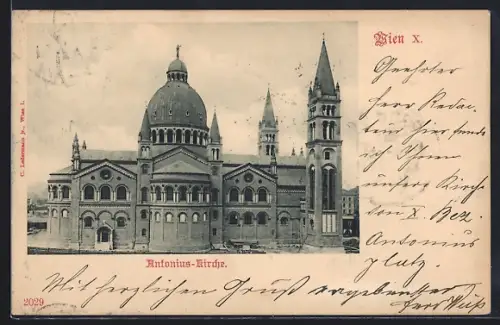 Wien X.
Geehrter
Herr Redac-
teur hier sende
ich Ihnen
unsere Kirche
von X. Bez.
Antonius
platz.
C. Ledermann jr., Wien I.
Antonius-Kirche.
Mit herzlichen Gruß ergebenster
2029